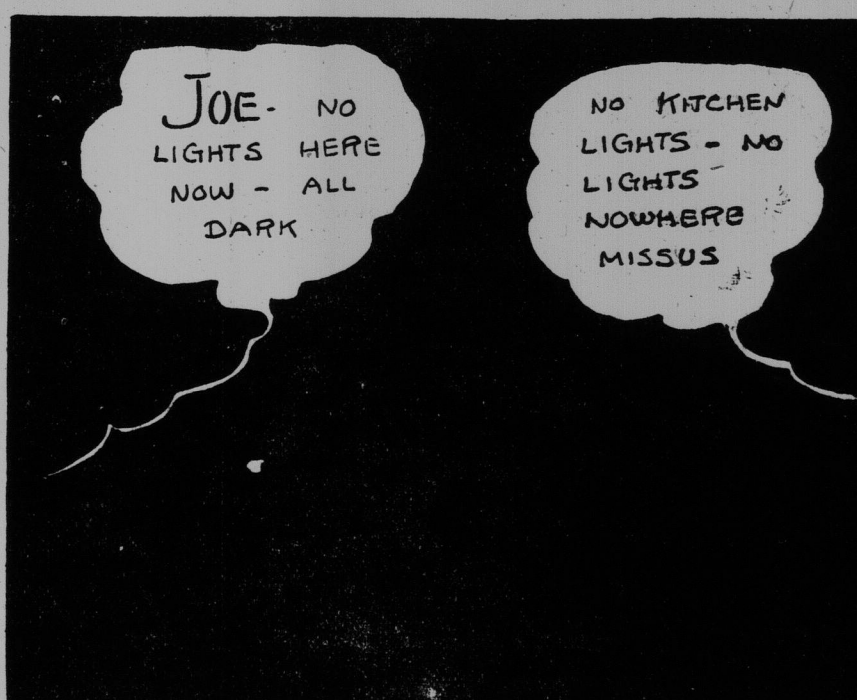 JOE - NO
LIGHTS HERE
NOW - ALL
DARK
NO KITCHEN
LIGHTS - NO
LIGHTS
NOWHERE
MISSUS